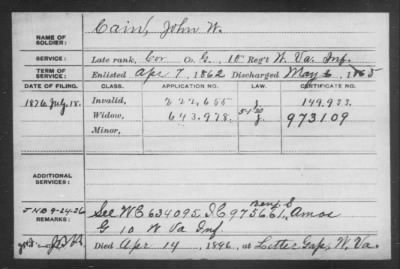 Cain, John W.
NAME OF SOLDIER:
SERVICE: Late rank, Cor Co. G, 10 Reg't W. Va. Inf.
TERM OF SERVICE: Enlisted Apr 7, 1862 Discharged May 6, 1865
DATE OF FILING. CLASS. APPLICATION NO. LAW. CERTIFICATE NO.
1876 July 18. Invalid, 222,655 J. 149,933
Widow, 643,978. J. 973109
Minor,
ADDITIONAL SERVICES:
JNB 9-24-26 See WC 634095. IC 975661, Benj. S. Amos
REMARKS: G 10 W Va Inf
Died Apr 14, 1896, at Letter Gap, W. Va.